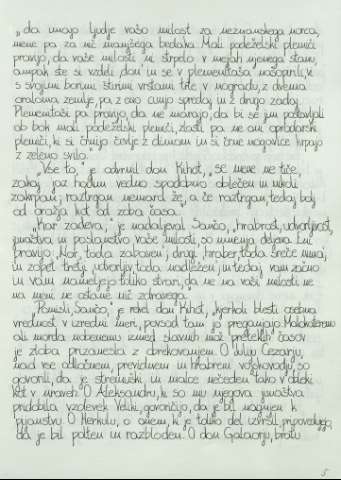 „da imajo ljudje vašo milost za neznanskega norca,
mene pa za nič manjšega bedaka. Mali podeželski plemiči
pravijo, da vaše milosti ni strpelo v mejah njenega stanu,
ampak ste si vzdeli don in se v plemenitaša našopirili, ki
s svojimi borimi štirimi vrstami trte v nogradu, z dvema
oraloma zemlje, pa z eno cunjo spredaj in z drugo zadaj.
Plemenitaši pa pravijo, da ne marajo, da bi se jim postavljali
ob bok mali podeželski plemiči, zlasti pa ne oni oprodarski
plemiči, ki si črnijo čevlje z dimom in si črne nogavice krpajo
z zeleno svilo."
„Vse to," je odvrnil don Kihot, „se mene ne tiče,
zakaj jaz hodim vedno spodobno oblečen in nikoli
zakrpan; raztrgan nemara že, a če raztrgan, tedaj bolj
od orožja kot od zoba časa."
„Kar zadeva," je nadaljeval Sančo, „hrabrost, udvorljivost,
junaštva in poslanstvo vaše milosti, so mnenja deljena. Eni
pravijo: Nor, toda zabaven; drugi: hraber, toda sreče nima;
in zopet tretji: udvorljiv, toda nadležen; in tedaj vam začno
in vam nametljejo toliko stvari, da ne na vaši milosti ne
na meni ne ostane nič zdravega."
„Pomisli, Sančo," je rekel don Kihot, „kjerkoli blesti osebna
vrednost v izredni meri, povsod tam jo preganjajo. Malokateremu
ali morda nobenemu izmed slavnih mož preteklih časov
je zloba prizanesla z obrekovanjem. O Juliju Cezarju,
nad vse odločnem, previdnem in hrabrem vojskovodju, so
govorili, da je stremuški in malce nečeden tako v obleki
kot v nraveh. O Aleksandru, ki so mu njegova junaštva
pridobila vzdevek Veliki, govoričijo, da je bil nagnjen k
pijanstvu. O Herkulu, o onem, ki je toliko del izvršil, pripovedujejo,
da je bil polten in razbloden. O don Galaorju, bratu
5